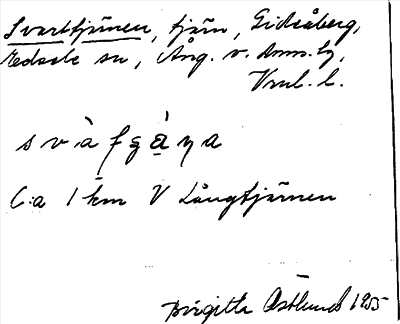 Svarttjärnen, tjärn, Gideåberg,
Edsele sn, Ång. v. Domsj.,
Vml. l.
s v à f g à ŋ a
C:a 1 km V Långtjärnen
Birgitta Östlund 1955